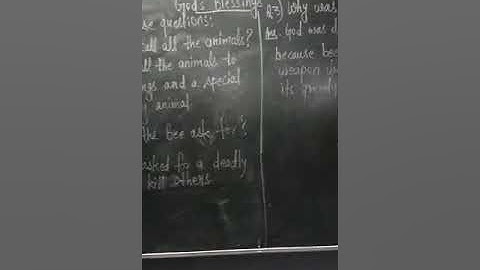 God's Blessings
se questions:
all the animals?
ll the animals to
ngs and a special
animal
the bee ask for?
asked for a deadly
kill others
Q3) Why was
Ans. God was d
because bee
weapon
its